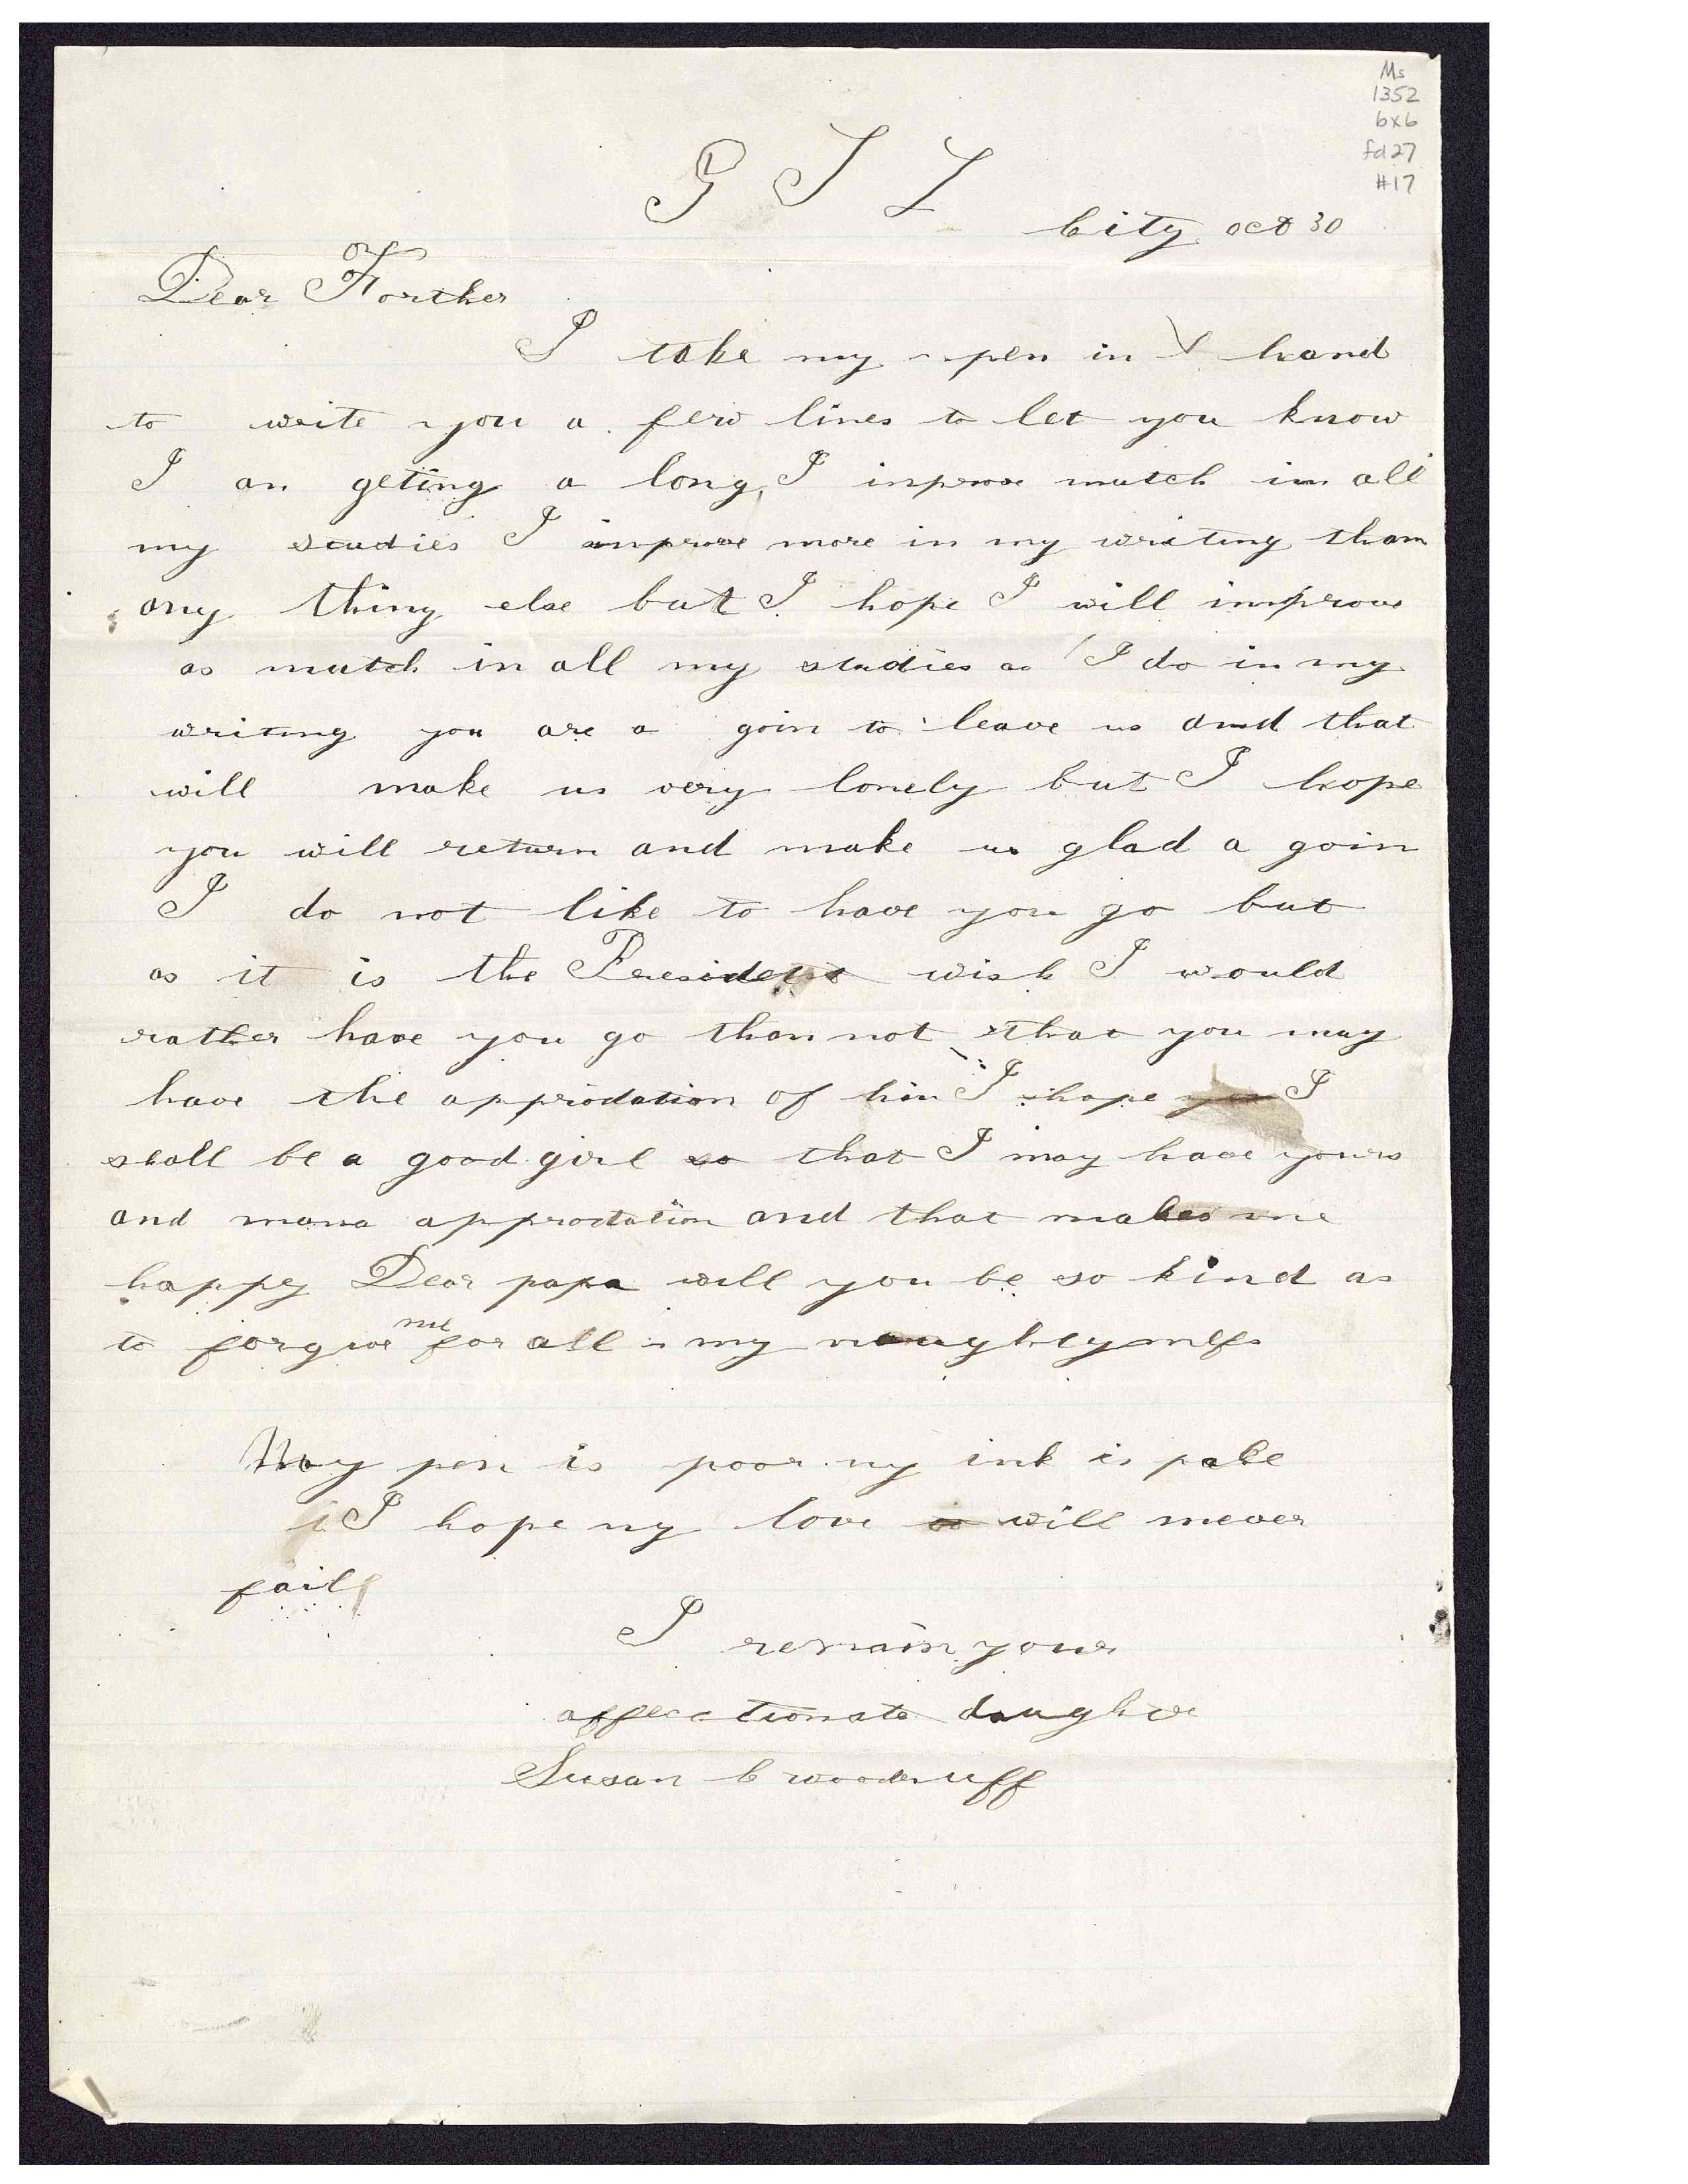 Ms
1352
bx 6
fd 27
#17
G S L
City oct 30
Dear Forther
I take my pen in hand
to write you a few lines to let you know
I an geting a long, I inprove mutch in all
my studies I improve more in my writing than
any thing else but I hope I will improve
as mutch in all my studies as I do in my
writing you are a goin to leave us and that
will make us very lonely but I hope
you will return and make us glad a goin
I do not like to have you go but
as it is the President wish I would
rather have you go than not that you may
have the approdation of him I hope you I
shall be a good girl so that I may have yours
and mama approdation and that makes me
happy Dear papa will you be so kind as
to forgive me for all my naughtyness
My pen is poor my ink is pale
I hope my love will never
fail
I remain your
affectionate daughter
Susan C woodruff